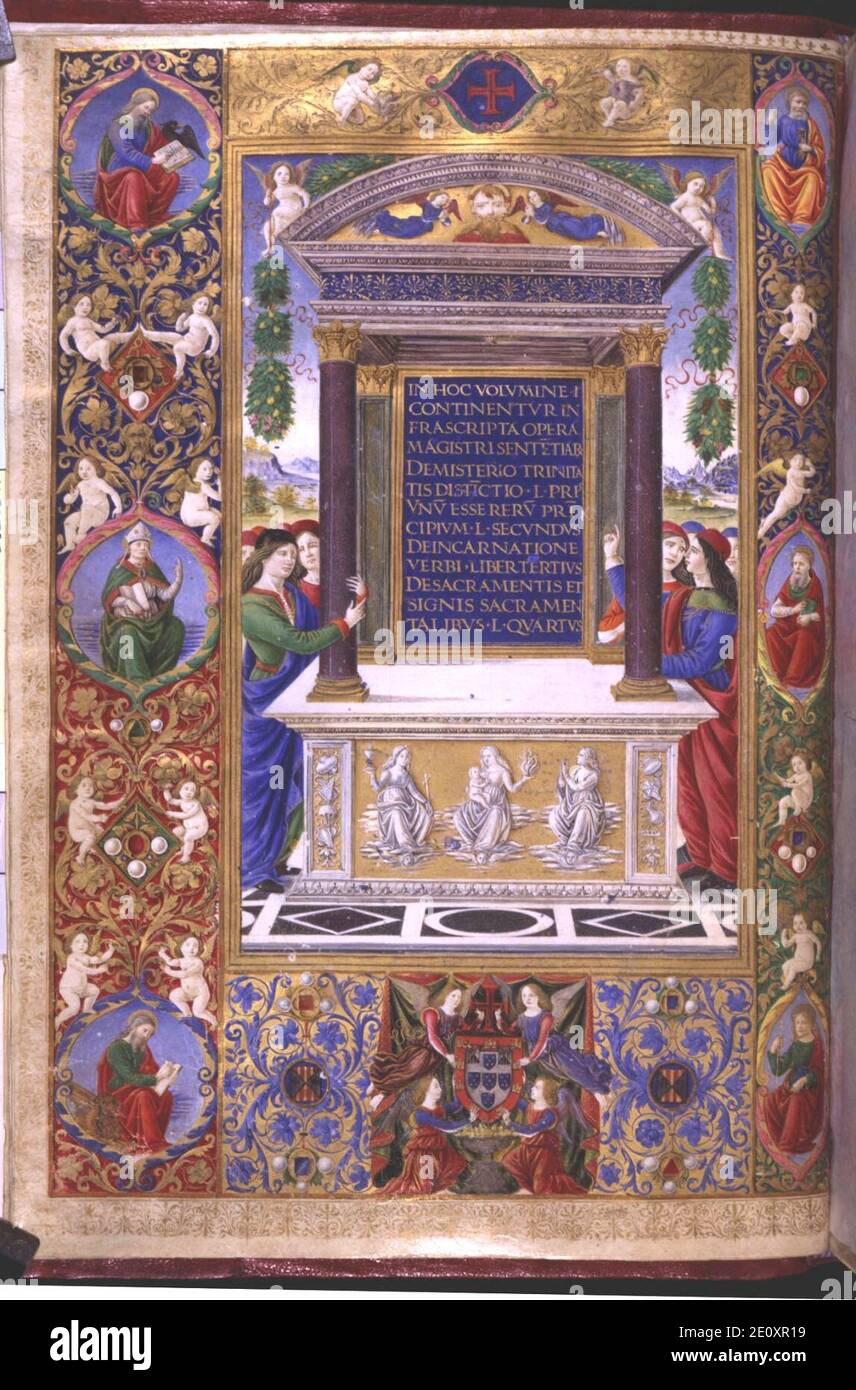 IN·HOC VOLVMINE·I
CONTINENTVR IN
FRASCRIPTA OPERA
MAGISTRI SENTĒTIAR
DE MISTERIO TRINITA
TIS DISTĪCTIO·L·PRI
VNV̄ ESSE RERV̄ PRĪ
CIPIVM·L·SECVNDVS
DE INCARNATIONE
VERBI·LIBER TERTIVS
DE SACRAMENTIS ET
SIGNIS SACRAMEN
TALIBVS·L·QVARTVS
alamy
a
alamy
Image ID: 2E0XR19
www.alamy.com